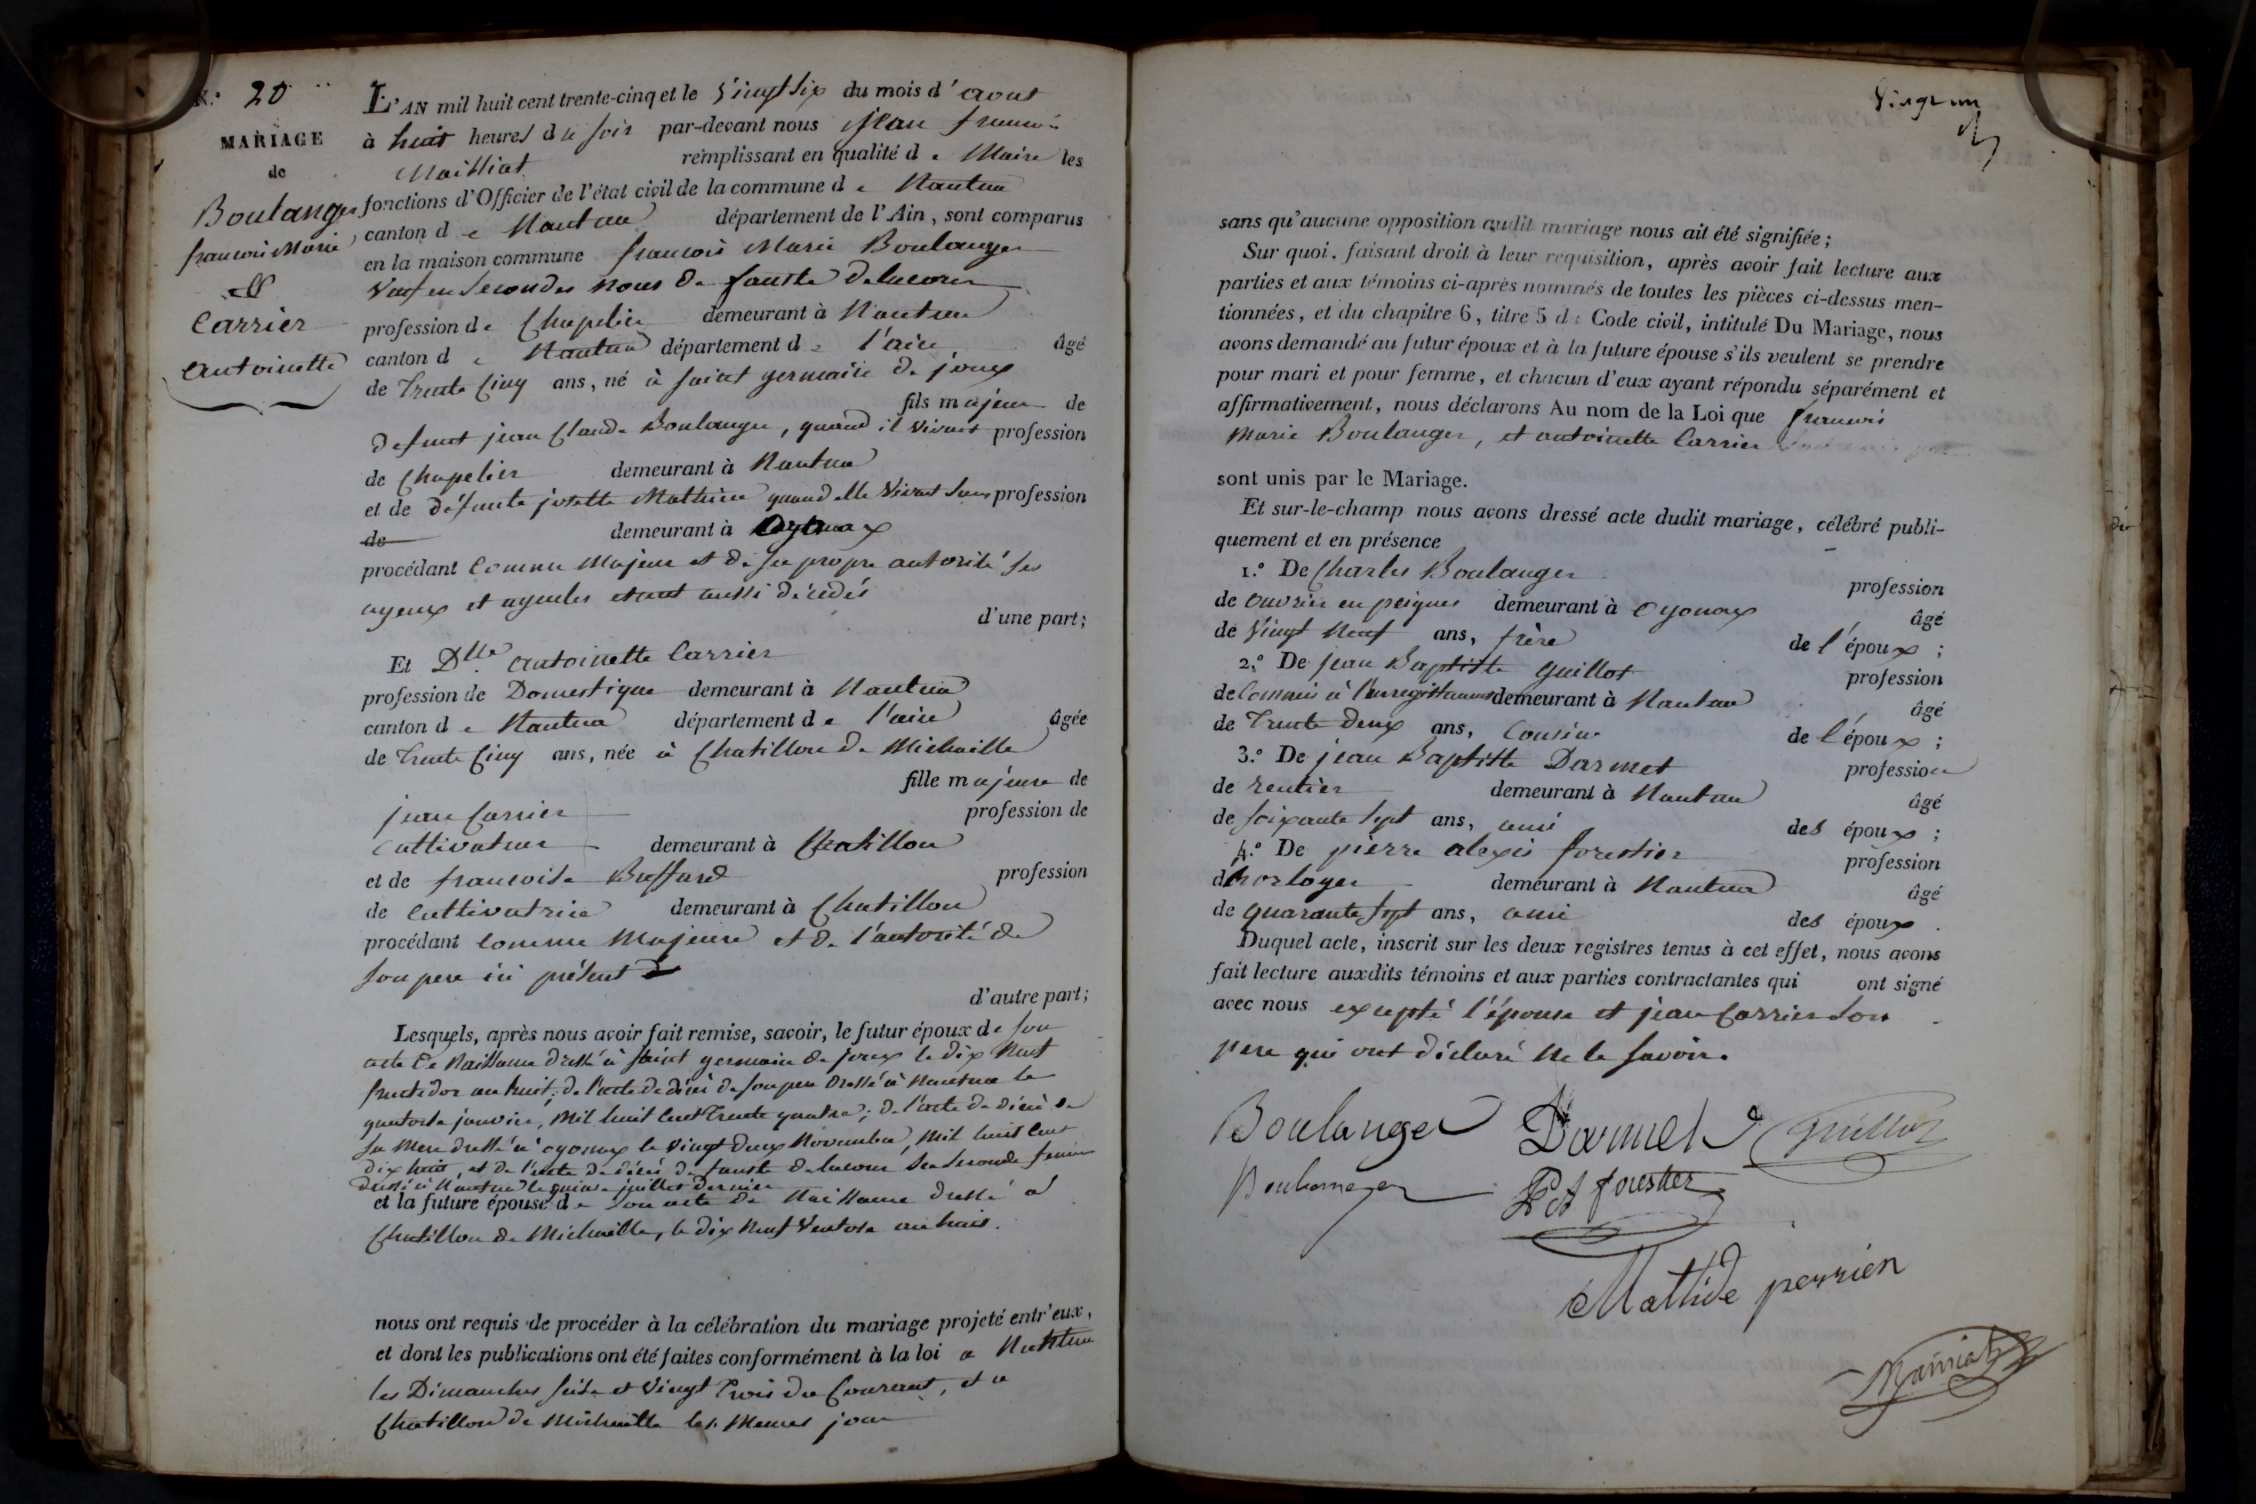 N.° 20
MARIAGE
de
Boulanger
francois Marie
et
Carrier
Antoinette
L'AN mil huit cent trente-cinq et le Vingt Six du mois d'aout
à huit heures du soir par-devant nous jean francois
Mailliat remplissant en qualité de Maire les
fonctions d'Officier de l'état civil de la commune de Nantua
canton de Nantua département de l'Ain, sont comparus
en la maison commune francois Marie Boulanger
Veuf en Secondes noces de fauste Delacour
profession de Chapelier demeurant à Nantua
canton de Nantua département de l'ain âgé
de Trente Cinq ans, né à saint germain de joux
fils majeur de
defunt jean Claude Boulanger, quand il vivait profession
de Chapelier demeurant à Nantua
et de défunte josette Mathieu quand elle Vivait Sans profession
de demeurant à oyonnax
procédant comme Majeur et de sa propre autorité ses
ayeux et ayeules etant aussi décédés
d'une part;
Et Dlle antoinette Carrier
profession de Domestique demeurant à Nantua
canton de Nantua département de l'ain âgée
de Trente Cinq ans, née à Chatillon de Michaille
fille majeure de
jean Carrier profession de
cultivateur demeurant à Chatillon
et de francoise Buffard profession
de Cultivatrice demeurant à Chatillon
procédant comme Majeure et de l'autorité de
son pere ici présent
d'autre part;
Lesquels, après nous avoir fait remise, savoir, le futur époux de son
acte de Naissance dressé à saint germain de joux le dix neuf
fructidor an huit; de l'acte de décès de son pere dressé à Nantua le
quatorze janvier, Mil huit Cent Trente quatre; de l'acte de décès de
sa Mere dressé à oyonax le vingt deux Novembre, Mil huit Cent
dix huit, et de l'acte de décès de fauste delacour sa seconde femme
dressé à Nantua le quinze juillet dernier
et la future épouse de son acte de Naissance dressé à
Chatillon de Michaille, le dix neuf Ventose an huit.
nous ont requis de procéder à la célébration du mariage projeté entr'eux,
et dont les publications ont été faites conformément à la loi a Nantua
les Dimanches seize et Vingt Trois du Courant, et a
Chatillon de Michaille les Memes jour
Vingt un
sans qu'aucune opposition audit mariage nous ait été signifiée;
Sur quoi, faisant droit à leur requisition, après avoir fait lecture aux
parties et aux témoins ci-après nommés de toutes les pièces ci-dessus men-
tionnées, et du chapitre 6, titre 5 du Code civil, intitulé Du Mariage, nous
avons demandé au futur époux et à la future épouse s'ils veulent se prendre
pour mari et pour femme, et chacun d'eux ayant répondu séparément et
affirmativement, nous déclarons Au nom de la Loi que francois
Marie Boulanger, et antoinette Carrier
sont unis par le Mariage.
Et sur-le-champ nous avons dressé acte dudit mariage, célébré publi-
quement et en présence
1.° De Charles Boulanger profession
de ouvrier en peignes demeurant à oyonax âgé
de Vingt Neuf ans, frère de l'époux;
2.° De jean Baptiste Guillot profession
de Commis à l'enregistrement demeurant à Nantua âgé
de Trente Deux ans, Cousin de l'époux;
3.° De jean Baptiste Darmet profession
de rentier demeurant à Nantua âgé
de soixante sept ans, ami des époux;
4.° De pierre alexis forestier profession
d'horloger demeurant à Nantua âgé
de quarante sept ans, ami des époux.
Duquel acte, inscrit sur les deux registres tenus à cet effet, nous avons
fait lecture auxdits témoins et aux parties contractantes qui ont signé
avec nous excepté l'épouse et jean Carrier son
pere qui ont déclaré ne le savoir.
Boulanger Darmet Guillot
Boulanger P A forestier
Mathide perrien
Mailliat